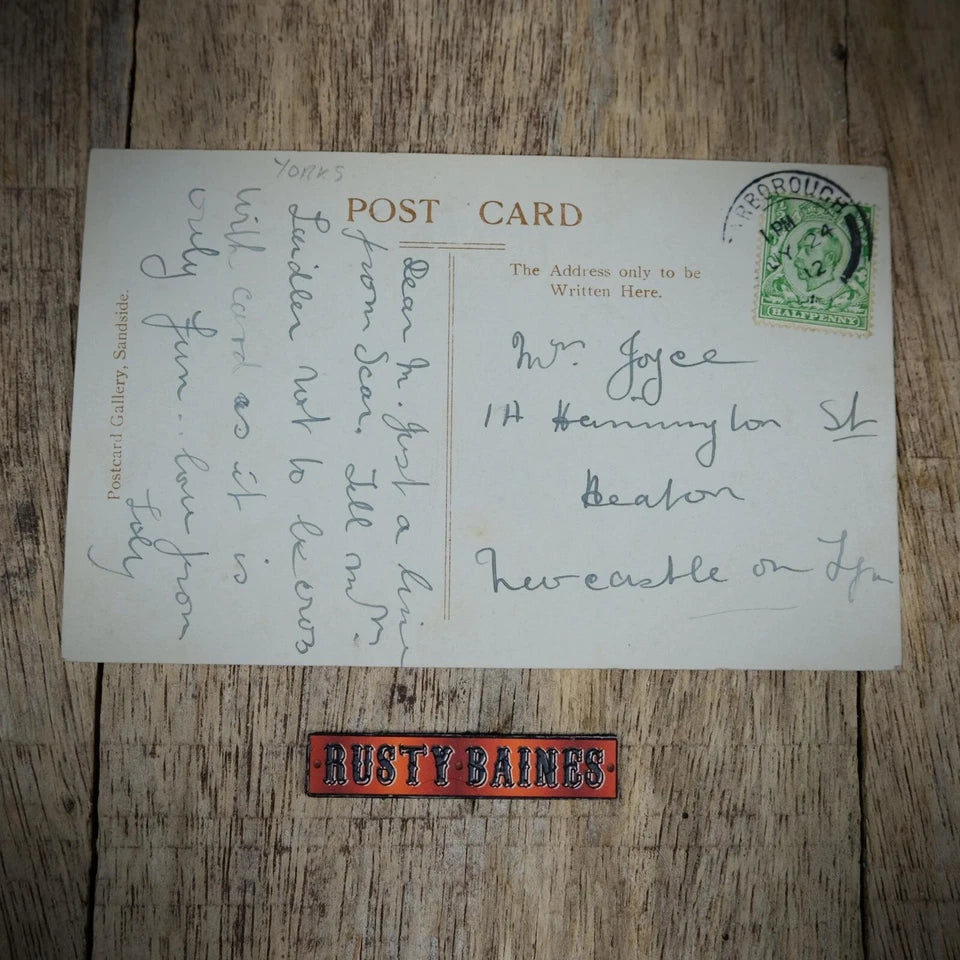 YORKS
POST CARD
The Address only to be
Written Here.
ARBOROUGH
1 PM
Y 24
12
HALFPENNY
Mrs. Joyce
Hannington St
Heaton
Newcastle on Tyn
Dear M. Just a line
from Scar. Tell Mrs.
Laidler not to be cross
with card as it is
only fun.. love from
Postcard Gallery, Sandside.
RUSTY·BAINES